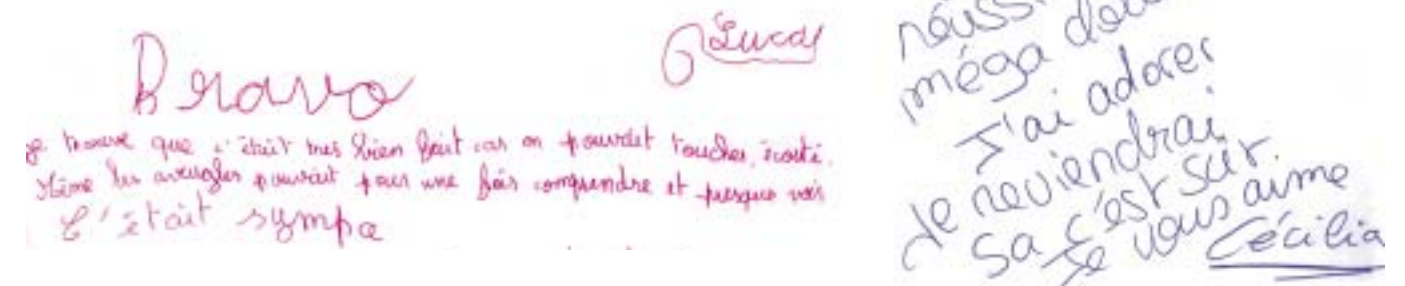 Bravo
Lucas
je trouve que c'était tres bien fait car on pouvait toucher, écouté.
Même les aveugles pouvait pour une fois comprendre et presque voir
C'était sympa
méga
J'ai adorer
Je reviendrai
Sa c'est sûr.
Je vous aime
Cécilia